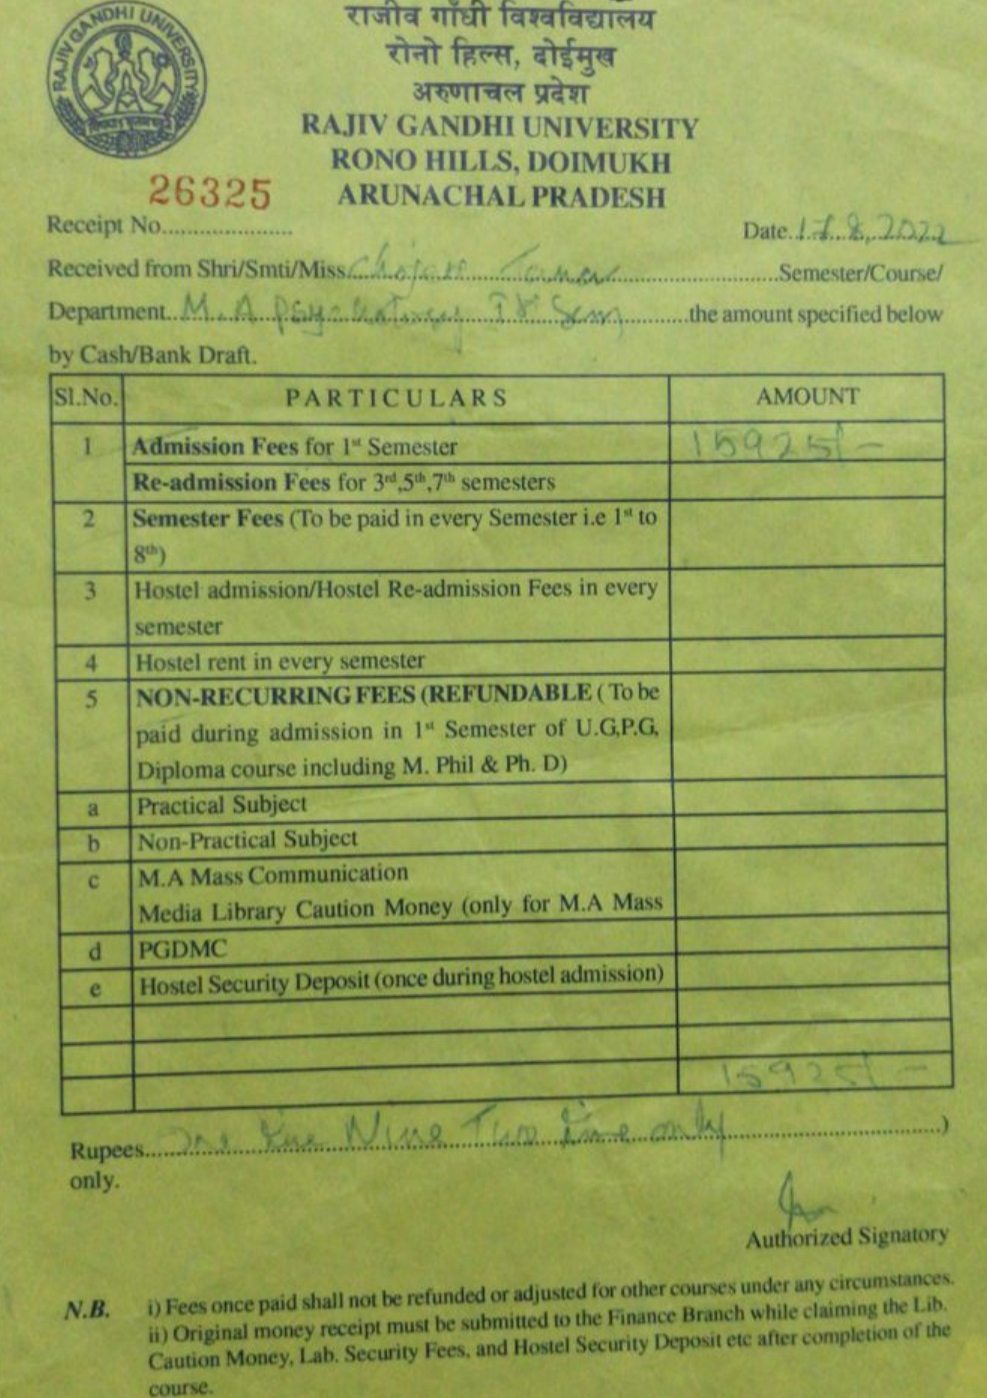 RAJIV GANDHI UNIVERSITY
राजीव गाँधी विश्वविद्यालय
रोनो हिल्स, दोईमुख
अरुणाचल प्रदेश
RAJIV GANDHI UNIVERSITY
RONO HILLS, DOIMUKH
ARUNACHAL PRADESH
26325
Receipt No....................
Date.17.8.2022
Received from Shri/Smti/Miss Semester/Course/
Department M.A Psychology Ist Sem the amount specified below
by Cash/Bank Draft.
Sl.No. PARTICULARS AMOUNT
1 Admission Fees for 1st Semester 15925/-
Re-admission Fees for 3rd,5th,7th semesters
2 Semester Fees (To be paid in every Semester i.e 1st to
8th)
3 Hostel admission/Hostel Re-admission Fees in every
semester
4 Hostel rent in every semester
5 NON-RECURRING FEES (REFUNDABLE ( To be
paid during admission in 1st Semester of U.G,P.G,
Diploma course including M. Phil & Ph. D)
a Practical Subject
b Non-Practical Subject
c M.A Mass Communication
Media Library Caution Money (only for M.A Mass
d PGDMC
e Hostel Security Deposit (once during hostel admission)
15925/-
Rupees One five Nine Two five only )
only.
Authorized Signatory
N.B. i) Fees once paid shall not be refunded or adjusted for other courses under any circumstances.
ii) Original money receipt must be submitted to the Finance Branch while claiming the Lib.
Caution Money, Lab. Security Fees, and Hostel Security Deposit etc after completion of the
course.